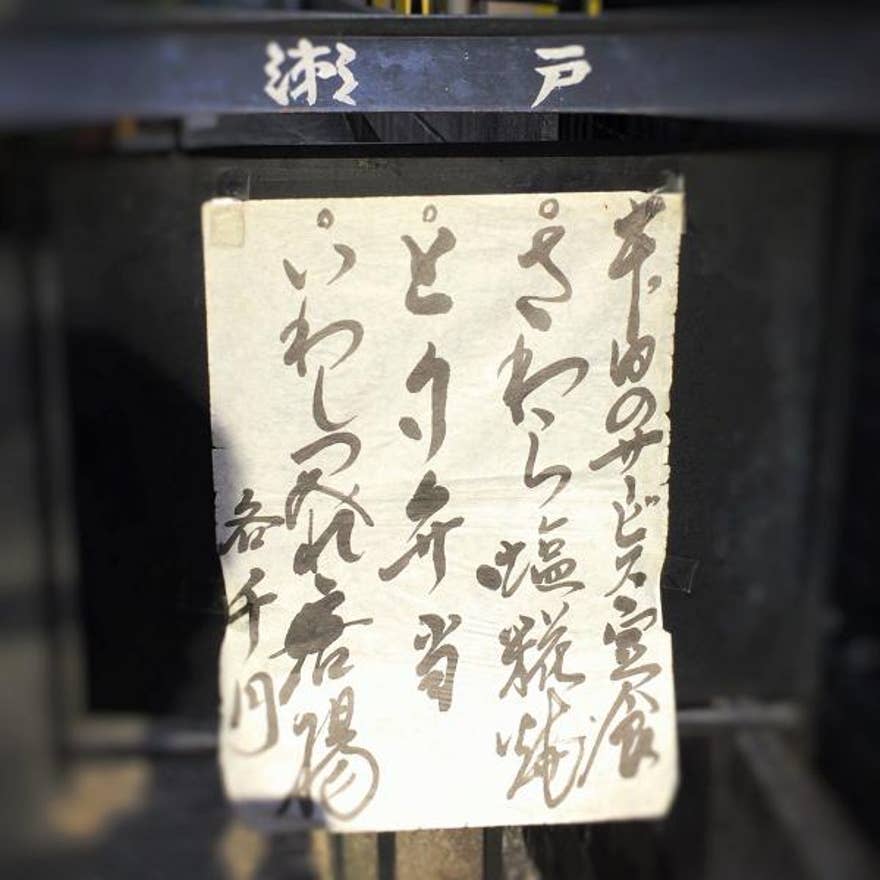 瀬戸
本日のサービス定食
○さわら塩糀焼
○とり弁当
○いわしつみれ唐揚
各千円